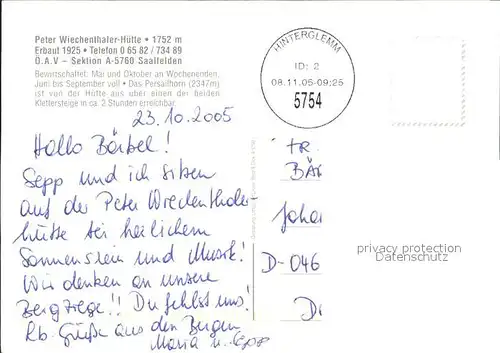 Peter Wiechenthaler-Hütte • 1752 m
Erbaut 1925 • Telefon 0 65 82 / 734 89
Ö.A.V – Sektion A-5760 Saalfelden
Bewirtschaftet: Mai und Oktober an Wochenenden,
Juni bis September voll • Das Persailhorn (2347m)
ist von der Hütte aus über einen der beiden
Klettersteige in ca. 2 Stunden erreichbar.
HINTERGLEMM
ID: 2
08.11.05-09:25
5754
23.10.2005
Hallo Bärbel!
Sepp und ich sitzen
auf der Peter Wiechenthaler-
hütte bei herrlichem
Sonnenschein und Musik!
Wir denken an unsere
Bergziege!! Du fehlst uns!
Lb. Grüße aus den Bergen
Maria u. Sepp
FR.
BÄR
Johan
D-046
privacy protection
Datenschutz